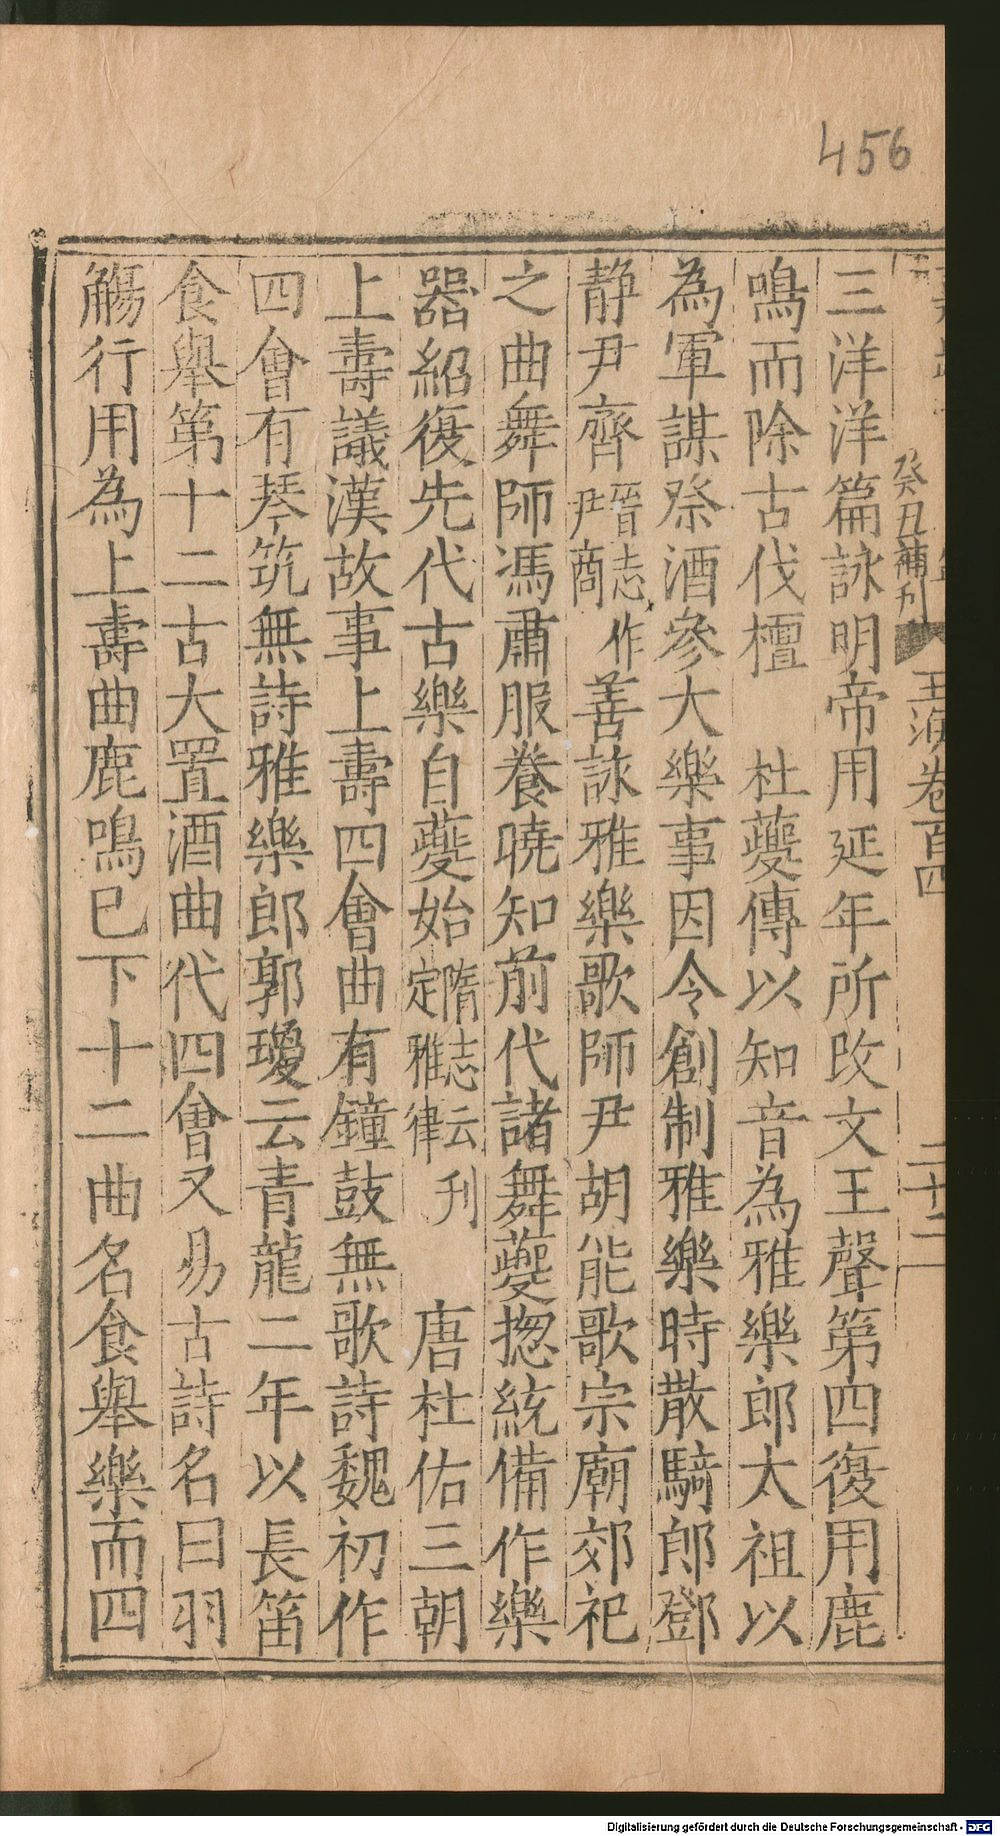 456
癸丑補刋
玉海卷百四
二十二
三洋洋篇詠明帝用延年所改文王聲第四復用鹿
鳴而除古伐檀 杜夔傳以知音為雅樂郎太祖以
為軍謀祭酒參大樂事因令創制雅樂時散騎郎鄧
静尹齊晉志作尹商善詠雅樂歌師尹胡能歌宗廟郊祀
之曲舞師馮肅服養曉知前代諸舞夔揔統備作樂
器紹復先代古樂自夔始隋志云刋定雅律 唐杜佑三朝
上壽議漢故事上壽四會曲有鐘鼓無歌詩魏初作
四會有琴筑無詩雅樂郎郭瓊云青龍二年以長笛
食舉第十二古大置酒曲代四會又易古詩名曰羽
觴行用為上壽曲鹿鳴已下十二曲名食舉樂而四
Digitalisierung gefördert durch die Deutsche Forschungsgemeinschaft - DFG